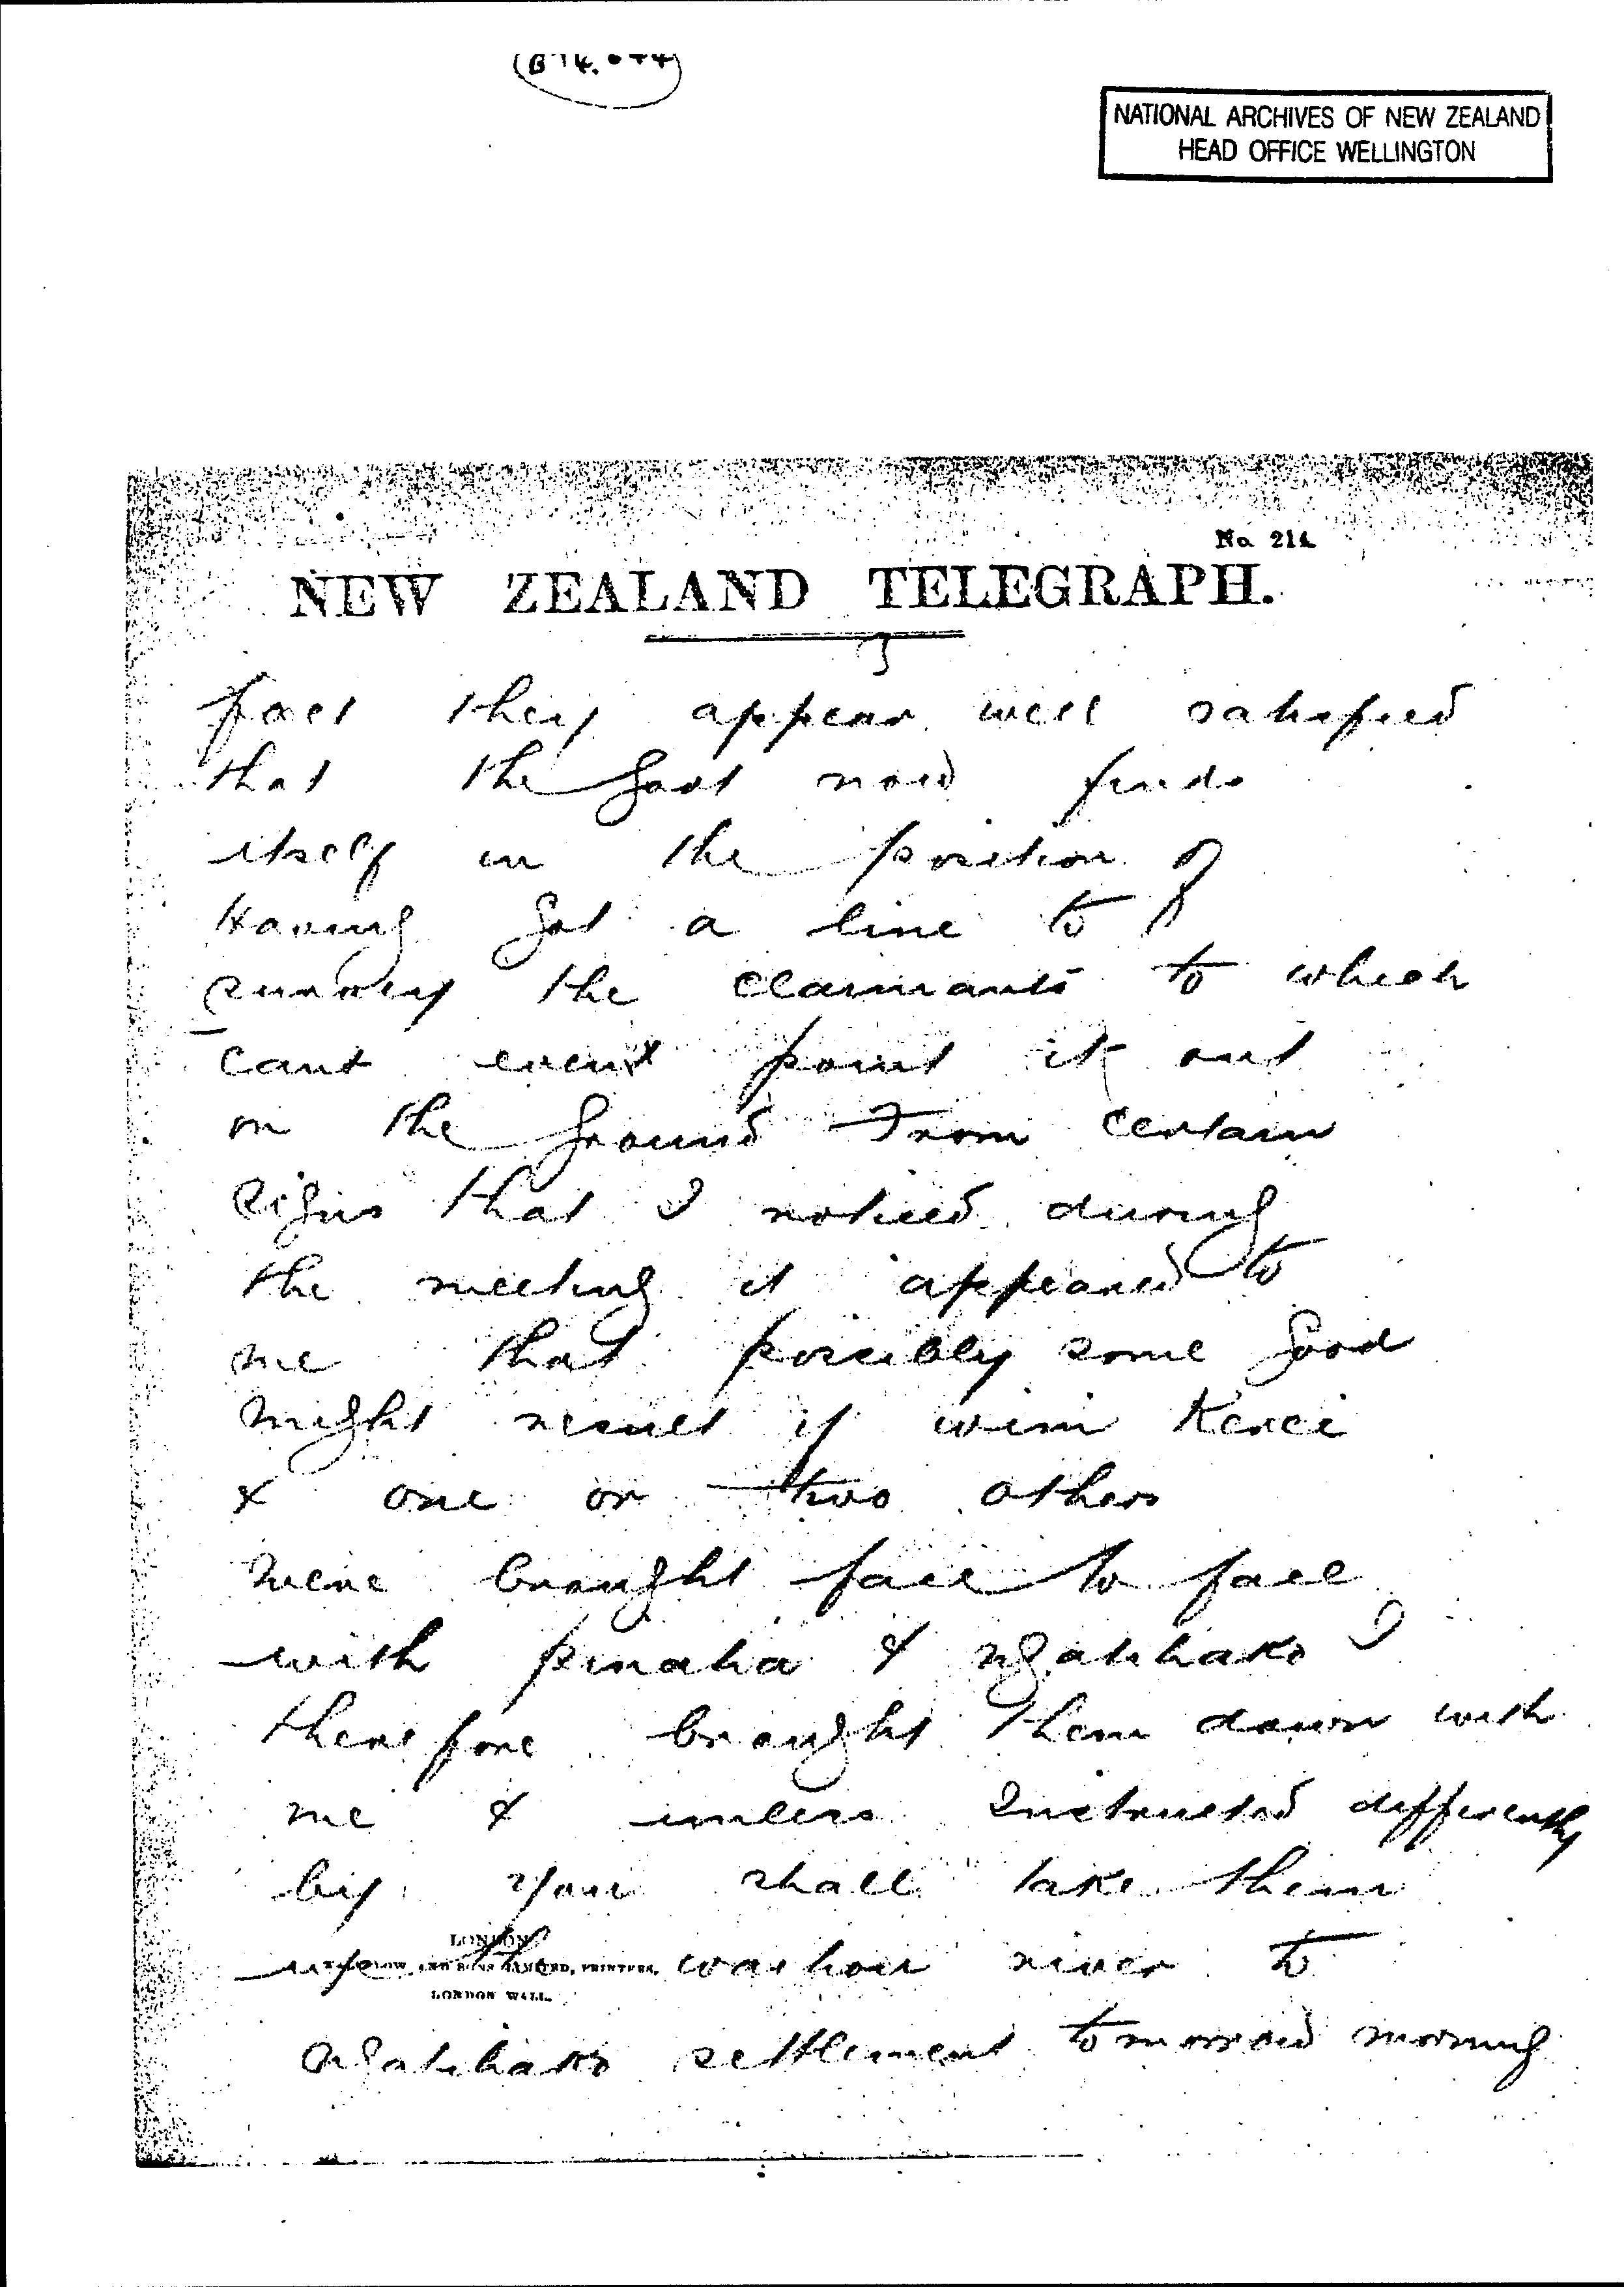 NATIONAL ARCHIVES OF NEW ZEALAND
HEAD OFFICE WELLINGTON
No. 214
NEW ZEALAND TELEGRAPH.
3
fact they appear well satisfied
that the Govt now finds
itself in the position of
Having got a line to
survey the claimants to which
cant even point it out
on the ground From certain
signs that I noticed during
the meeting it appeared to
me that possibly some good
might result if wim Kerei
& one or two others
were brought face to face
with pinaha & ngatihako I
therefore brought them down with
me & unless Instructed differently
by you shall take them
up the waihou river to
ngatihako settlement tomorrow morning
LONDON
AND SONS LIMITED, PRINTERS,
LONDON WALL.